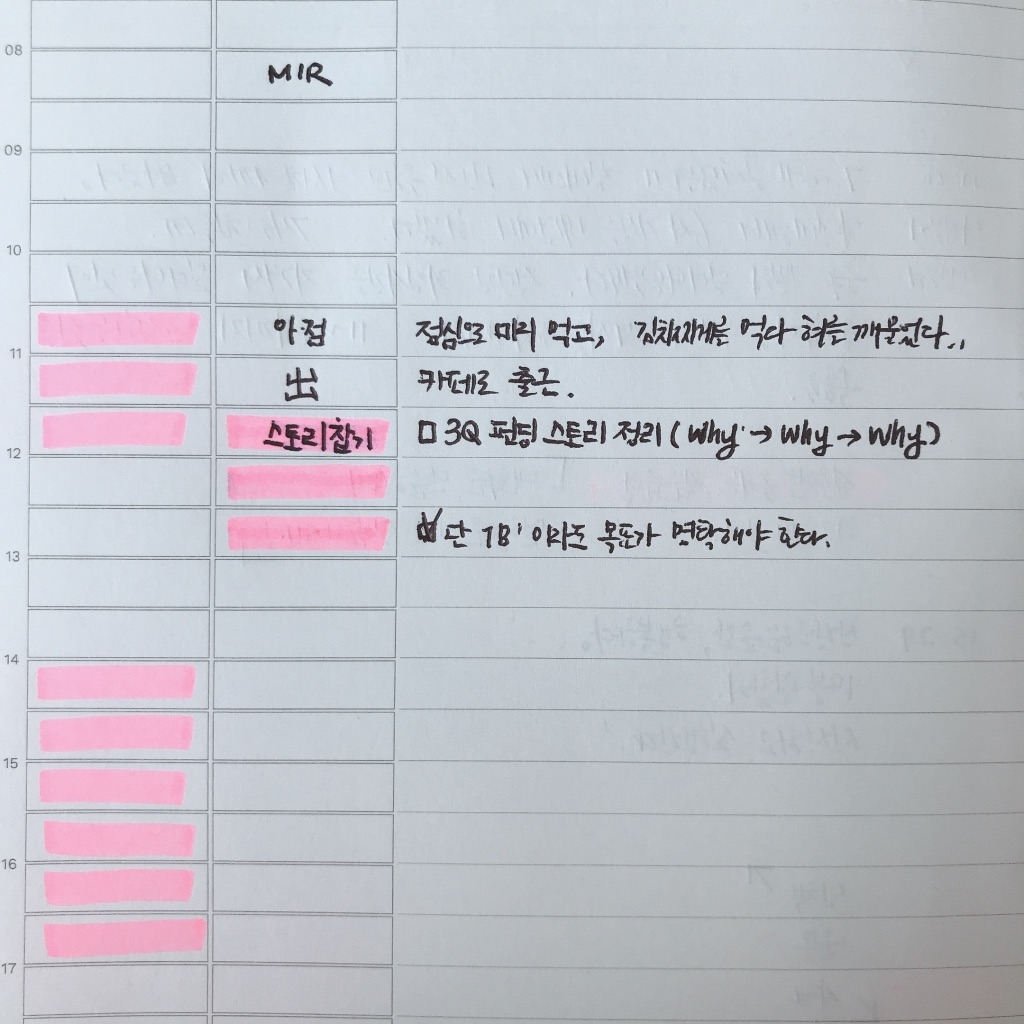 08
MIR
09
10
아점 점심으로 미리 먹고, 김치찌개를 먹다 혀를 깨물었다..
11
出 카페로 출근.
스토리잡기 □ 3Q 펀딩 스토리 정리 (Why → Why → Why)
12
단 1일이라도 목표가 명확해야 한다.
13
14
15
16
17